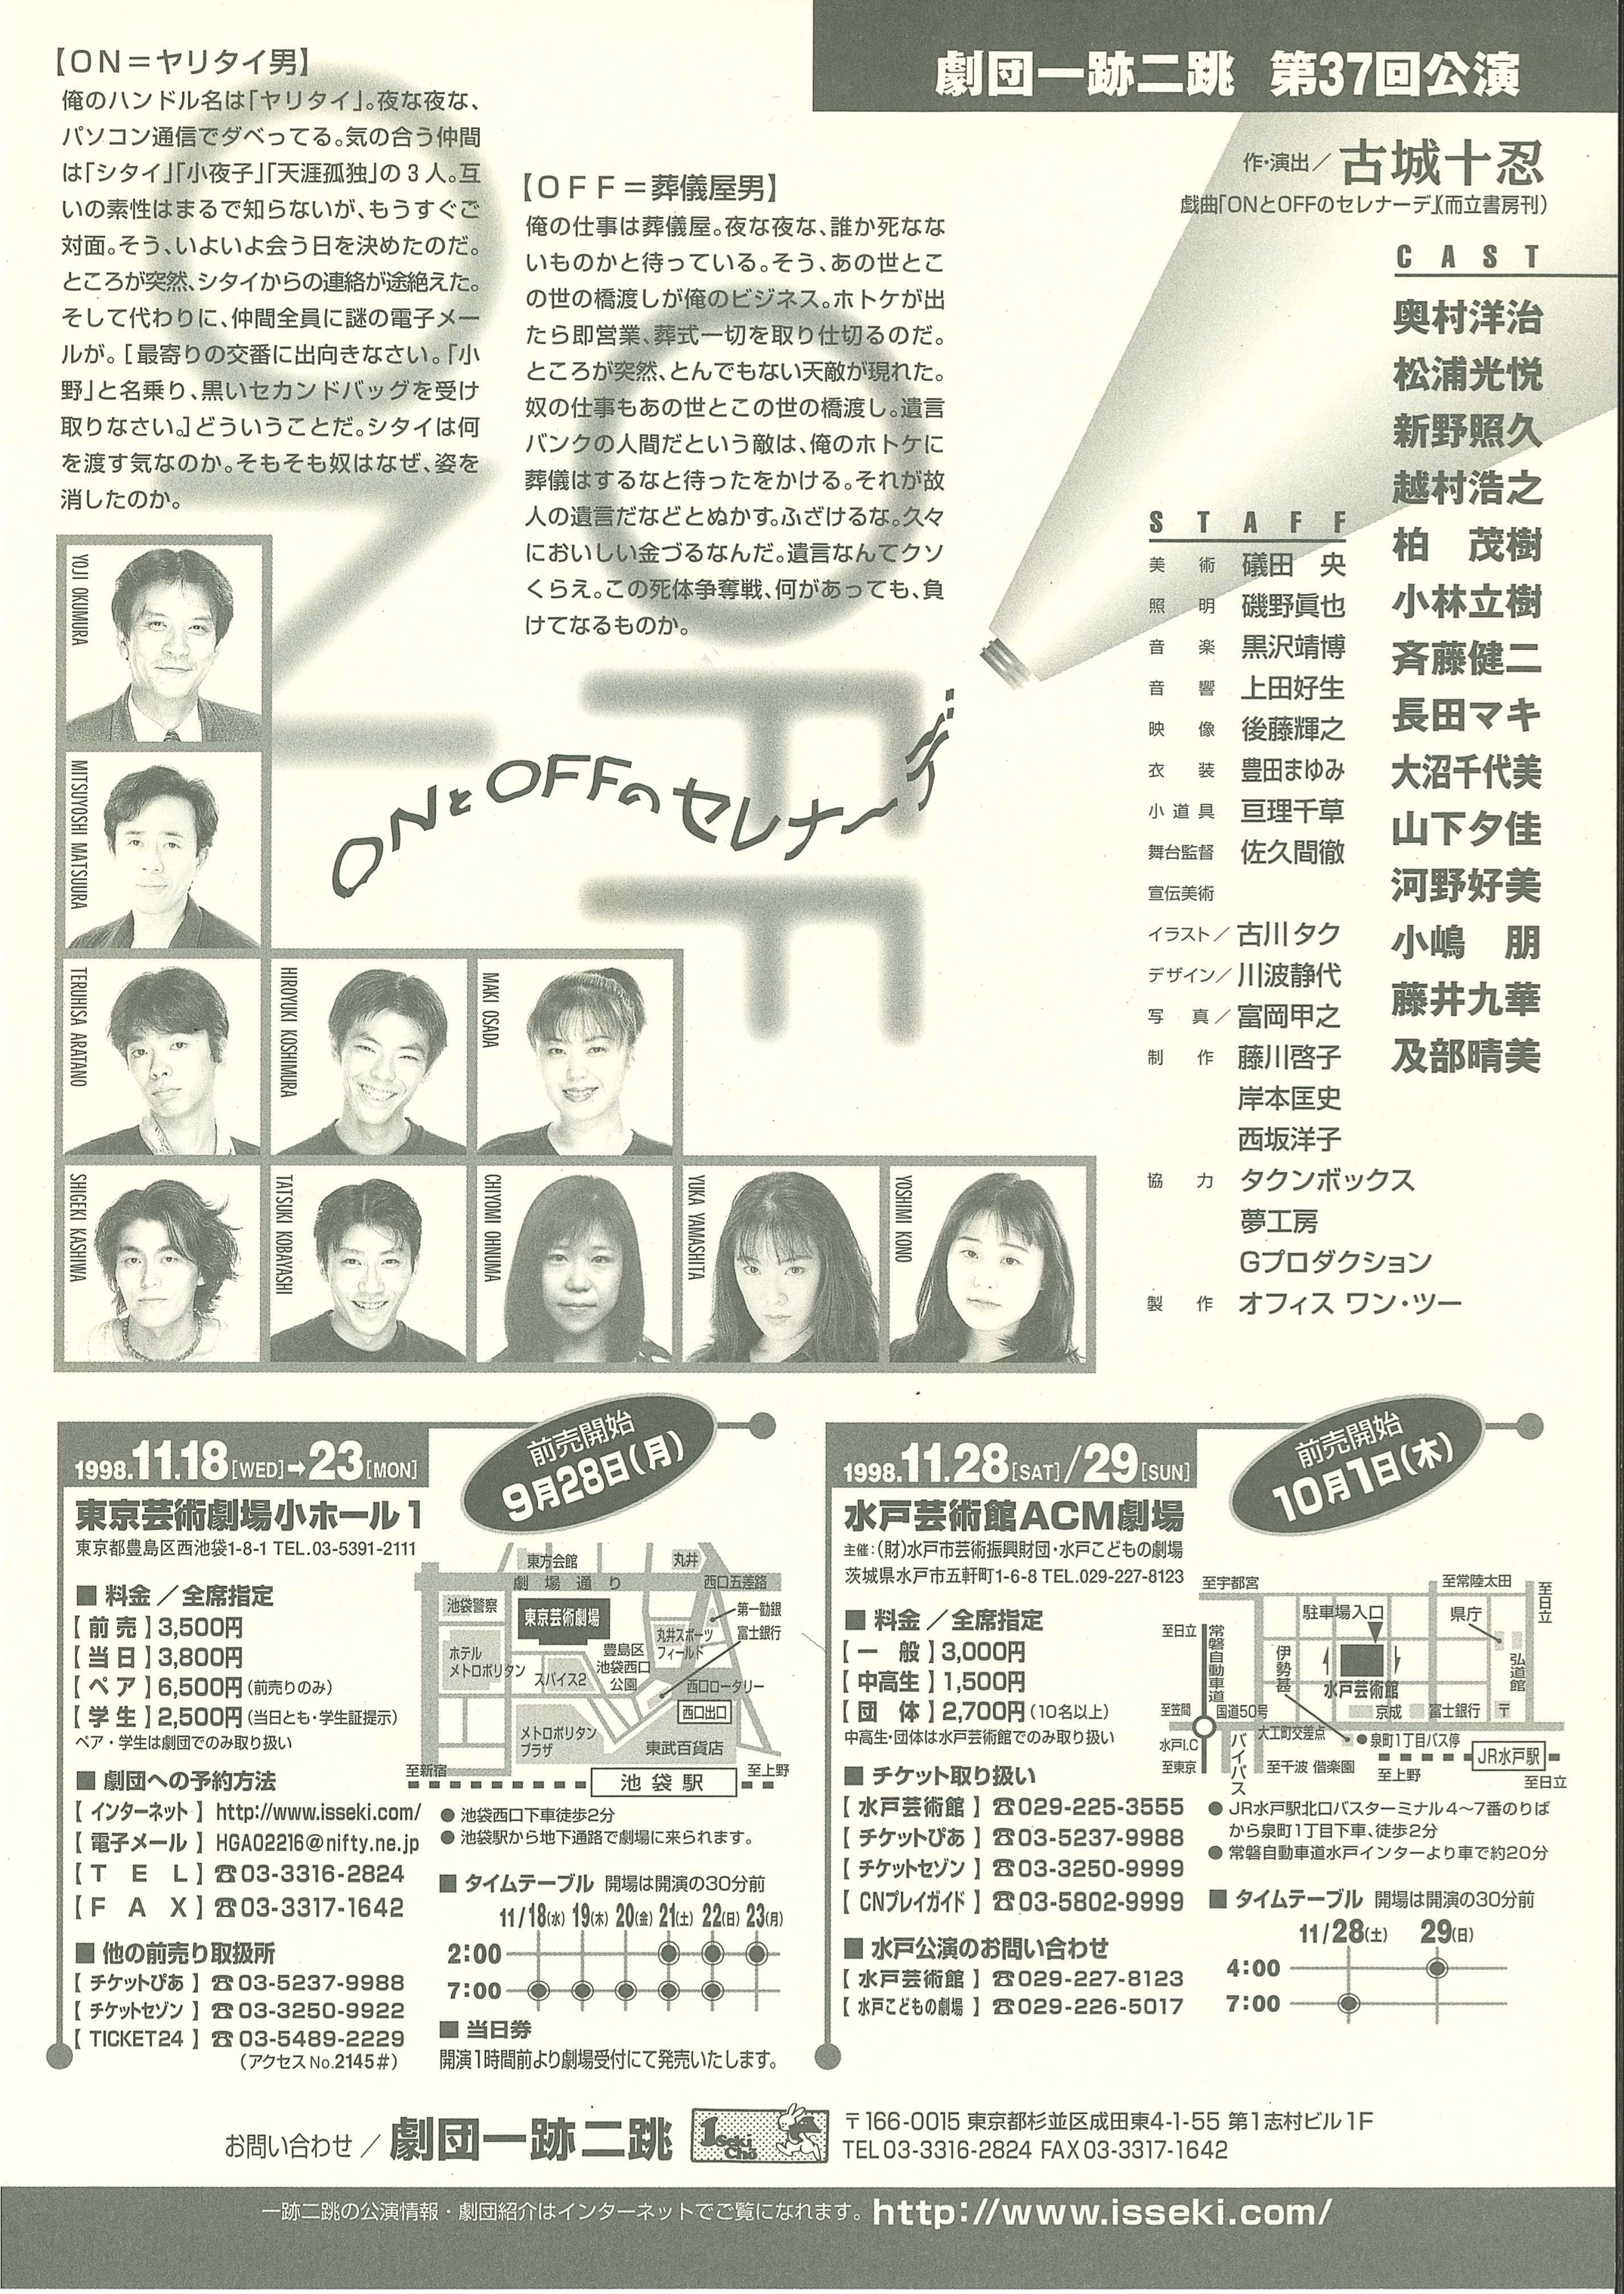 劇団一跡二跳 第37回公演
【ON＝ヤリタイ男】
俺のハンドル名は｢ヤリタイ｣。夜な夜な、
パソコン通信でダベってる。気の合う仲間
は｢シタイ｣｢小夜子｣｢天涯孤独｣の3人。互
いの素性はまるで知らないが、もうすぐご
対面。そう、いよいよ会う日を決めたのだ。
ところが突然、シタイからの連絡が途絶えた。
そして代わりに、仲間全員に謎の電子メー
ルが。［最寄りの交番に出向きなさい。｢小
野｣と名乗り、黒いセカンドバッグを受け
取りなさい。］どういうことだ。シタイは何
を渡す気なのか。そもそも奴はなぜ、姿を
消したのか。
【OFF＝葬儀屋男】
俺の仕事は葬儀屋。夜な夜な、誰か死なな
いものかと待っている。そう、あの世とこ
の世の橋渡しが俺のビジネス。ホトケが出
たら即営業、葬式一切を取り仕切るのだ。
ところが突然、とんでもない天敵が現れた。
奴の仕事もあの世とこの世の橋渡し。遺言
バンクの人間だという敵は、俺のホトケに
葬儀はするなと待ったをかける。それが故
人の遺言だなどとぬかす。ふざけるな。久々
においしい金づるなんだ。遺言なんてクソ
くらえ。この死体争奪戦、何があっても、負
けてなるものか。
ON
OFF
ONとOFFのセレナーデ
作・演出／古城十忍
戯曲｢ONとOFFのセレナーデ｣(而立書房刊)
CAST
奥村洋治
松浦光悦
新野照久
越村浩之
柏　茂樹
小林立樹
斉藤健二
長田マキ
大沼千代美
山下夕佳
河野好美
小嶋　朋
藤井九華
及部晴美
STAFF
美　術 礒田　央
照　明 磯野眞也
音　楽 黒沢靖博
音　響 上田好生
映　像 後藤輝之
衣　装 豊田まゆみ
小道具 亘理千草
舞台監督 佐久間徹
宣伝美術
イラスト／古川タク
デザイン／川波静代
写　真／富岡甲之
制　作 藤川啓子
岸本匡史
西坂洋子
協　力 タクンボックス
夢工房
Gプロダクション
製　作 オフィス ワン・ツー
YOJI OKUMURA
MITSUYOSHI MATSUURA
TERUHISA ARATANO
HIROYUKI KOSHIMURA
MAKI OSADA
SHIGEKI KASHIWA
TATSUKI KOBAYASHI
CHIYOMI OHNUMA
YUKA YAMASHITA
YOSHIMI KONO
1998.11.18[WED]→23[MON]
前売開始
9月28日(月)
東京芸術劇場小ホール1
東京都豊島区西池袋1-8-1 TEL.03-5391-2111
■ 料金／全席指定
【前売】3,500円
【当日】3,800円
【ペア】6,500円(前売りのみ)
【学生】2,500円(当日とも・学生証提示)
ペア・学生は劇団でのみ取り扱い
■ 劇団への予約方法
【インターネット】http://www.isseki.com/
【電子メール】HGA02216@nifty.ne.jp
【TEL】☎03-3316-2824
【FAX】☎03-3317-1642
■ 他の前売り取扱所
【チケットぴあ】☎03-5237-9988
【チケットセゾン】☎03-3250-9922
【TICKET24】☎03-5489-2229
(アクセスNo.2145#)
東方会館
丸井
劇場通り
西口五差路
池袋警察
東京芸術劇場
第一勧銀
丸井スポーツ
フィールド
富士銀行
ホテル
メトロポリタン
スパイス2
豊島区
池袋西口
公園
西口ロータリー
西口出口
メトロポリタン
プラザ
東武百貨店
至新宿
池袋駅
至上野
● 池袋西口下車徒歩2分
● 池袋駅から地下通路で劇場に来られます。
■ タイムテーブル 開場は開演の30分前
11/18(水) 19(木) 20(金) 21(土) 22(日) 23(月)
2:00
7:00
■ 当日券
開演1時間前より劇場受付にて発売いたします。
1998.11.28[SAT]/29[SUN]
前売開始
10月1日(木)
水戸芸術館ACM劇場
主催：(財)水戸市芸術振興財団・水戸こどもの劇場
茨城県水戸市五軒町1-6-8 TEL.029-227-8123
■ 料金／全席指定
【一　般】3,000円
【中高生】1,500円
【団　体】2,700円(10名以上)
中高生・団体は水戸芸術館でのみ取り扱い
■ チケット取り扱い
【水戸芸術館】☎029-225-3555
【チケットぴあ】☎03-5237-9988
【チケットセゾン】☎03-3250-9999
【CNプレイガイド】☎03-5802-9999
■ 水戸公演のお問い合わせ
【水戸芸術館】☎029-227-8123
【水戸こどもの劇場】☎029-226-5017
至宇都宮
至常陸太田
至日立
駐車場入口
県庁
至日立
常磐自動車道
伊勢甚
水戸芸術館
弘道館
至笠間
国道50号
京成
富士銀行
〒
水戸I.C
大工町交差点
●泉町1丁目バス停
至東京
バイパス
至千波 偕楽園
至上野
JR水戸駅
至日立
● JR水戸駅北口バスターミナル4〜7番のりば
から泉町1丁目下車、徒歩2分
● 常磐自動車道水戸インターより車で約20分
■ タイムテーブル 開場は開演の30分前
11/28(土) 29(日)
4:00
7:00
お問い合わせ／劇団一跡二跳
1seki
2cho
〒166-0015 東京都杉並区成田東4-1-55 第1志村ビル1F
TEL03-3316-2824 FAX03-3317-1642
一跡二跳の公演情報・劇団紹介はインターネットでご覧になれます。http://www.isseki.com/